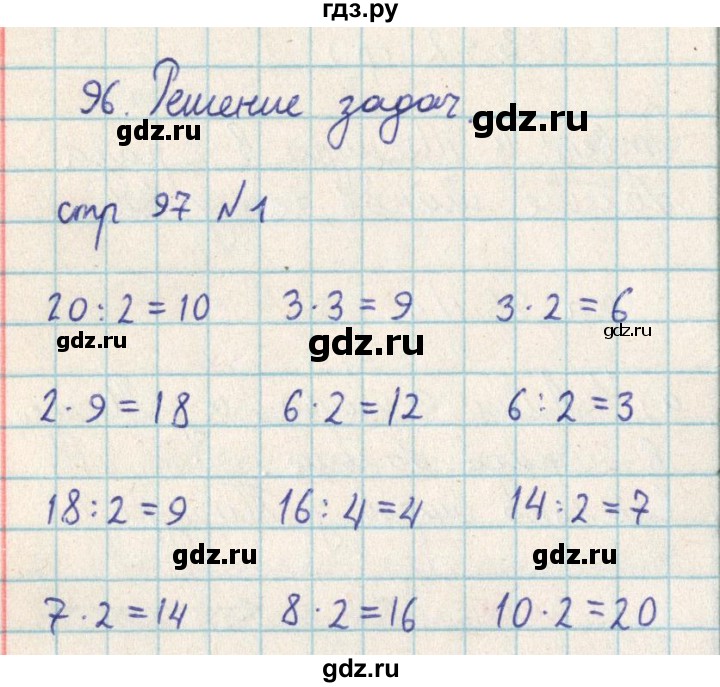 гдз.ру
96. Решение задач.
gdz.ru
gdz.ru
стр 97 №1
20:2=10 3·3=9 3·2=6
gdz.ru
gdz.ru
gdz.ru
2·9=18 6·2=12 6:2=3
18:2=9 16:4=4 14:2=7
gdz.ru
gdz.ru
7·2=14 8·2=16 10·2=20
gdz.ru